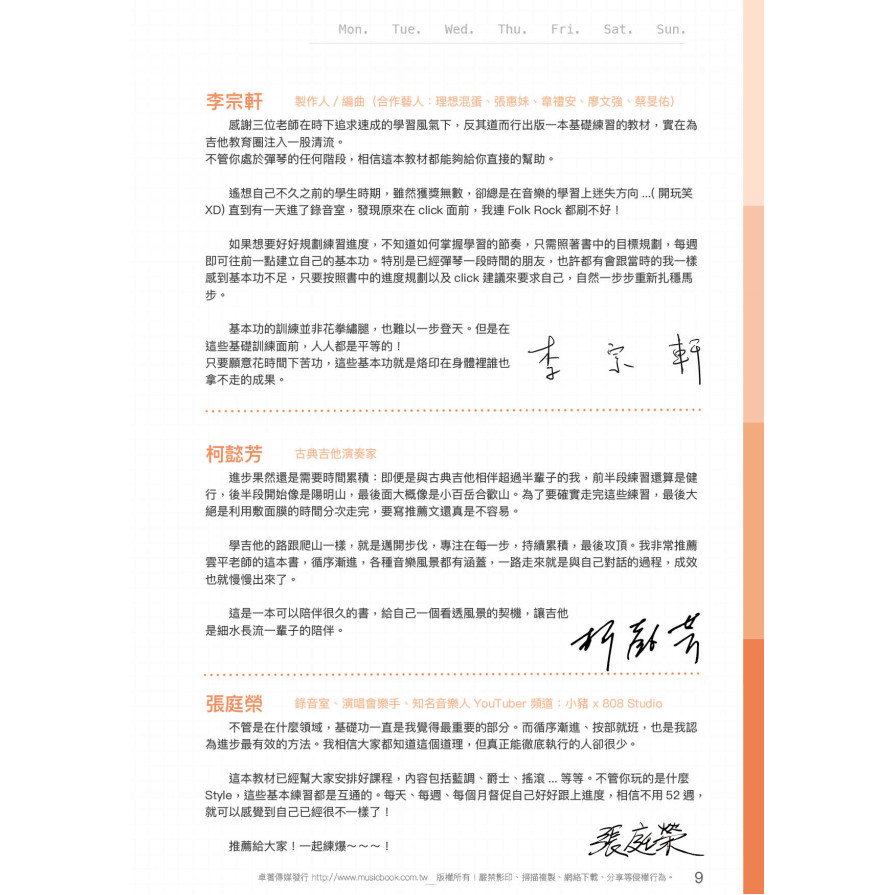 Mon. Tue. Wed. Thu. Fri. Sat. Sun.
李宗軒 製作人 / 編曲（合作藝人：理想混蛋、張惠妹、韋禮安、廖文強、蔡旻佑）
感謝三位老師在時下追求速成的學習風氣下，反其道而行出版一本基礎練習的教材，實在為
吉他教育圈注入一股清流。
不管你處於彈琴的任何階段，相信這本教材都能夠給你直接的幫助。
遙想自己不久之前的學生時期，雖然獲獎無數，卻總是在音樂的學習上迷失方向 ...( 開玩笑
XD) 直到有一天進了錄音室，發現原來在 click 面前，我連 Folk Rock 都刷不好！
如果想要好好規劃練習進度，不知道如何掌握學習的節奏，只需照著書中的目標規劃，每週
即可往前一點建立自己的基本功。特別是已經彈琴一段時間的朋友，也許都有會跟當時的我一樣
感到基本功不足，只要按照書中的進度規劃以及 click 建議來要求自己，自然一步步重新扎穩馬
步。
基本功的訓練並非花拳繡腿，也難以一步登天。但是在
這些基礎訓練面前，人人都是平等的！
只要願意花時間下苦功，這些基本功就是烙印在身體裡誰也
拿不走的成果。
李宗軒
柯懿芳 古典吉他演奏家
進步果然還是需要時間累積：即便是與古典吉他相伴超過半輩子的我，前半段練習還算是健
行，後半段開始像是陽明山，最後面大概像是小百岳合歡山。為了要確實走完這些練習，最後大
絕是利用敷面膜的時間分次走完，要寫推薦文還真是不容易。
學吉他的路跟爬山一樣，就是邁開步伐，專注在每一步，持續累積，最後攻頂。我非常推薦
雲平老師的這本書，循序漸進，各種音樂風景都有涵蓋，一路走來就是與自己對話的過程，成效
也就慢慢出來了。
這是一本可以陪伴很久的書，給自己一個看透風景的契機，讓吉他
是細水長流一輩子的陪伴。
柯懿芳
張庭榮 錄音室、演唱會樂手、知名音樂人 YouTuber 頻道：小豬 x 808 Studio
不管是在什麼領域，基礎功一直是我覺得最重要的部分。而循序漸進、按部就班，也是我認
為進步最有效的方法。我相信大家都知道這個道理，但真正能徹底執行的人卻很少。
這本教材已經幫大家安排好課程，內容包括藍調、爵士、搖滾 ... 等等。不管你玩的是什麼
Style，這些基本練習都是互通的。每天、每週、每個月督促自己好好跟上進度，相信不用 52 週，
就可以感覺到自己已經很不一樣了！
推薦給大家！一起練爆～～～！
張庭榮
卓著傳媒發行 http://www.musicbook.com.tw 版權所有！嚴禁影印、掃描複製、網絡下載、分享等侵權行為。 9